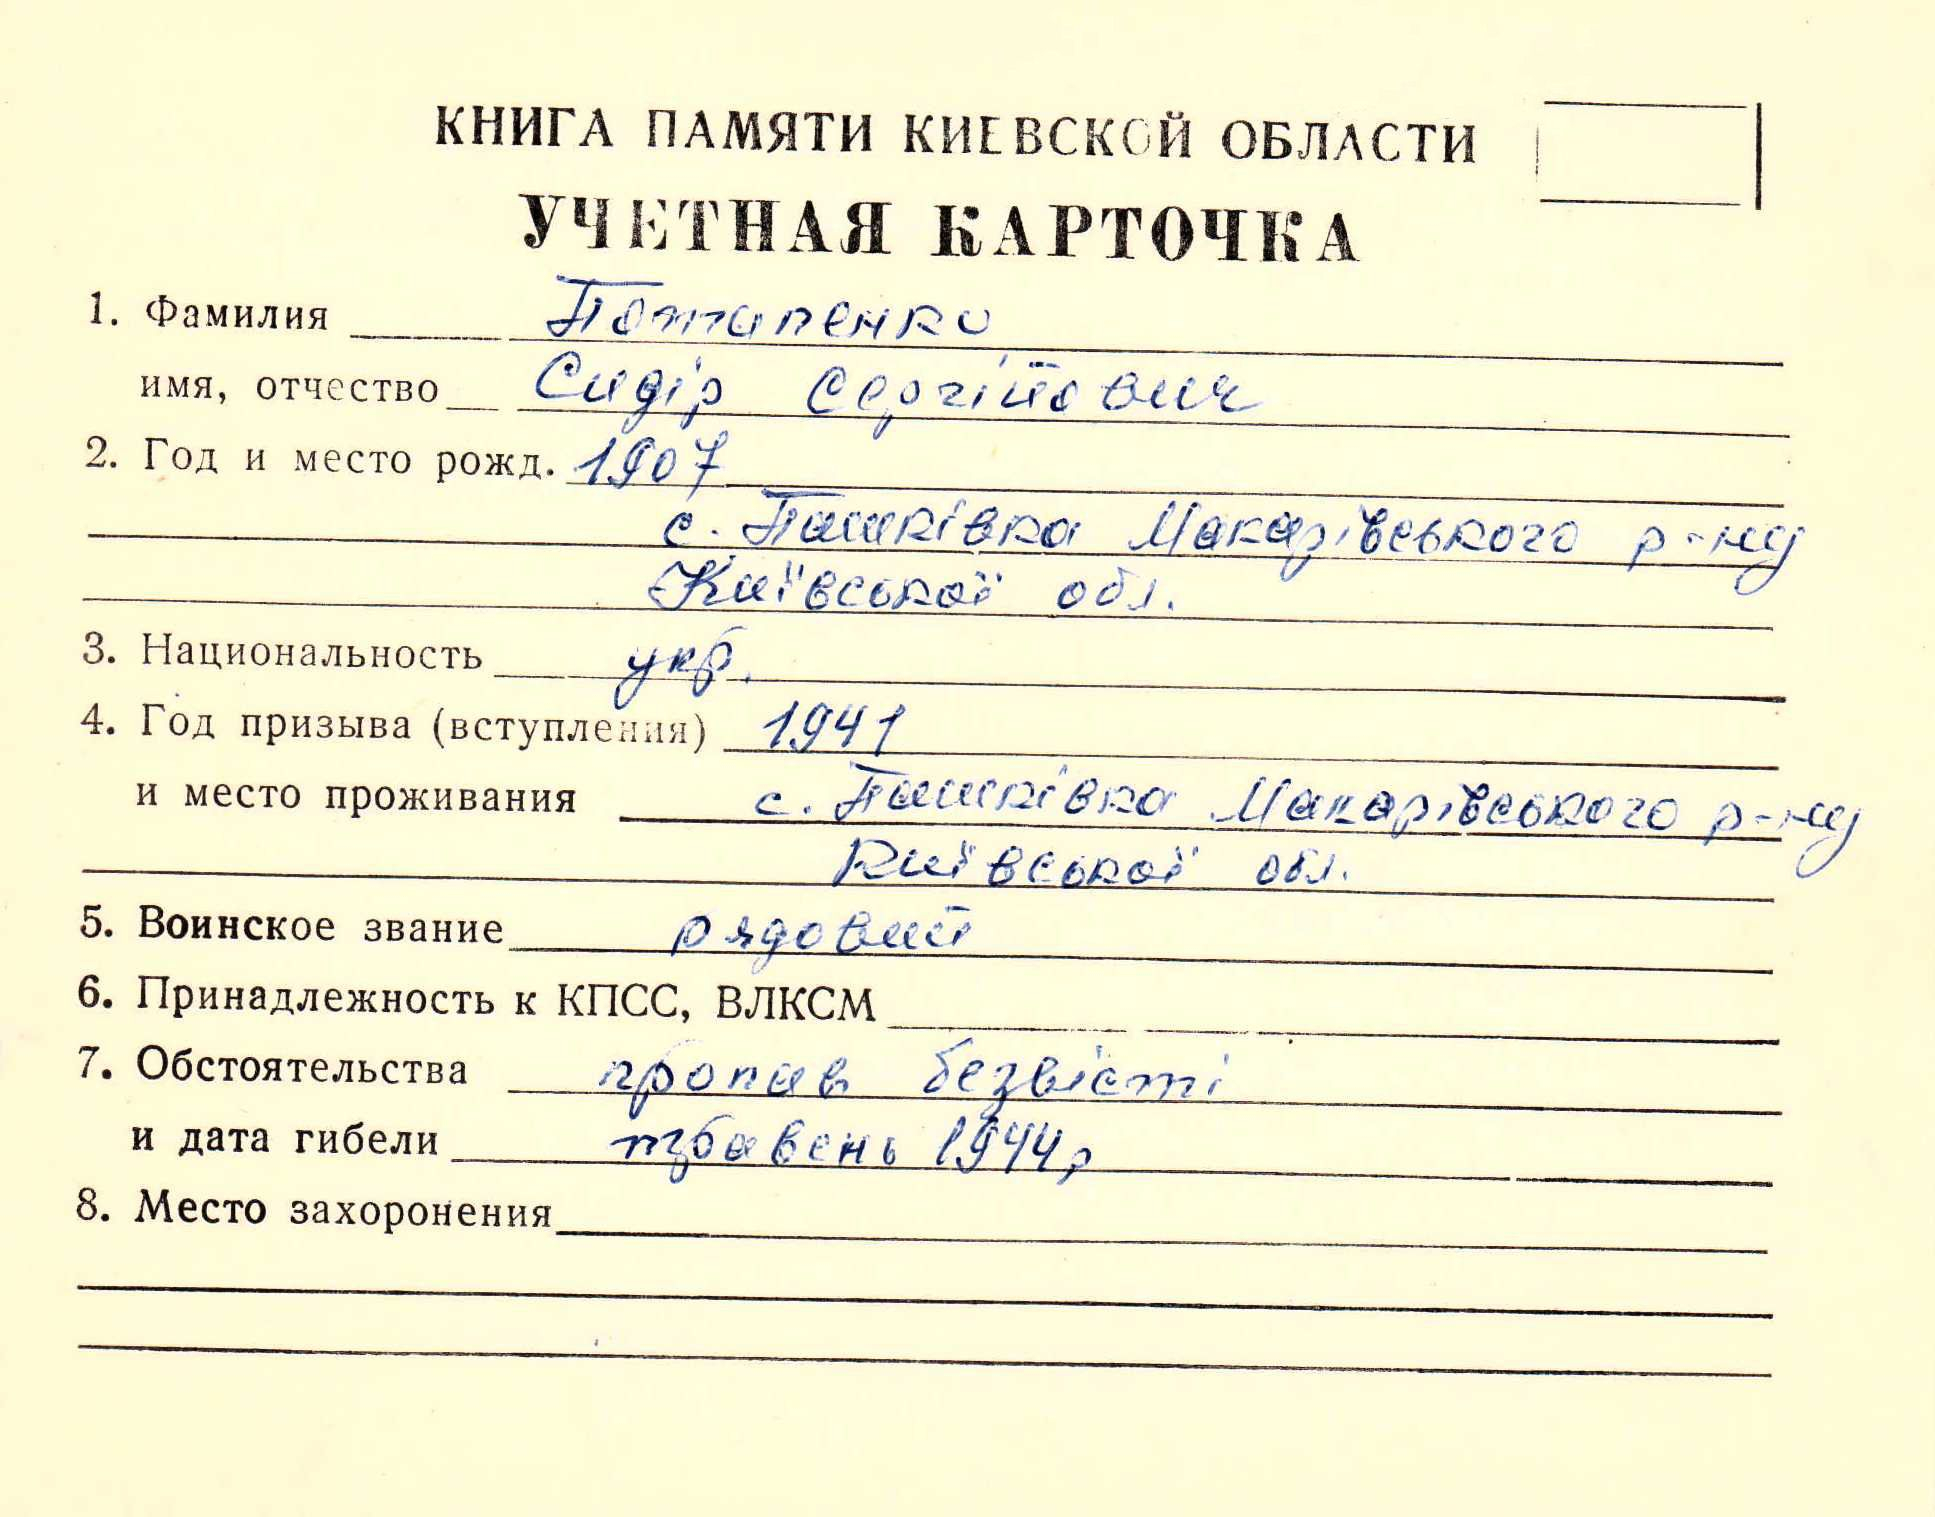 КНИГА ПАМЯТИ КИЕВСКОЙ ОБЛАСТИ
УЧЕТНАЯ КАРТОЧКА
1. Фамилия Потапенко
имя, отчество Сидір Сергійович
2. Год и место рожд. 1907
с. Пашківка Макарівського р-ну
Київської обл.
3. Национальность укр.
4. Год призыва (вступления) 1941
и место проживания с. Пашківка Макарівського р-ну
Київської обл.
5. Воинское звание рядовий
6. Принадлежность к КПСС, ВЛКСМ
7. Обстоятельства пропав безвісті
и дата гибели травень 1944р
8. Место захоронения